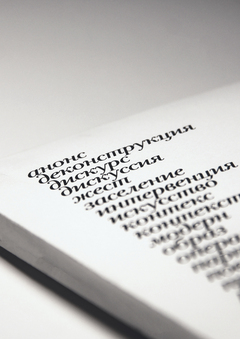 анонс
деконструкция
дискурс
дискуссия
жест
заселение
интервенция
искусство
контекст
модерн
образ